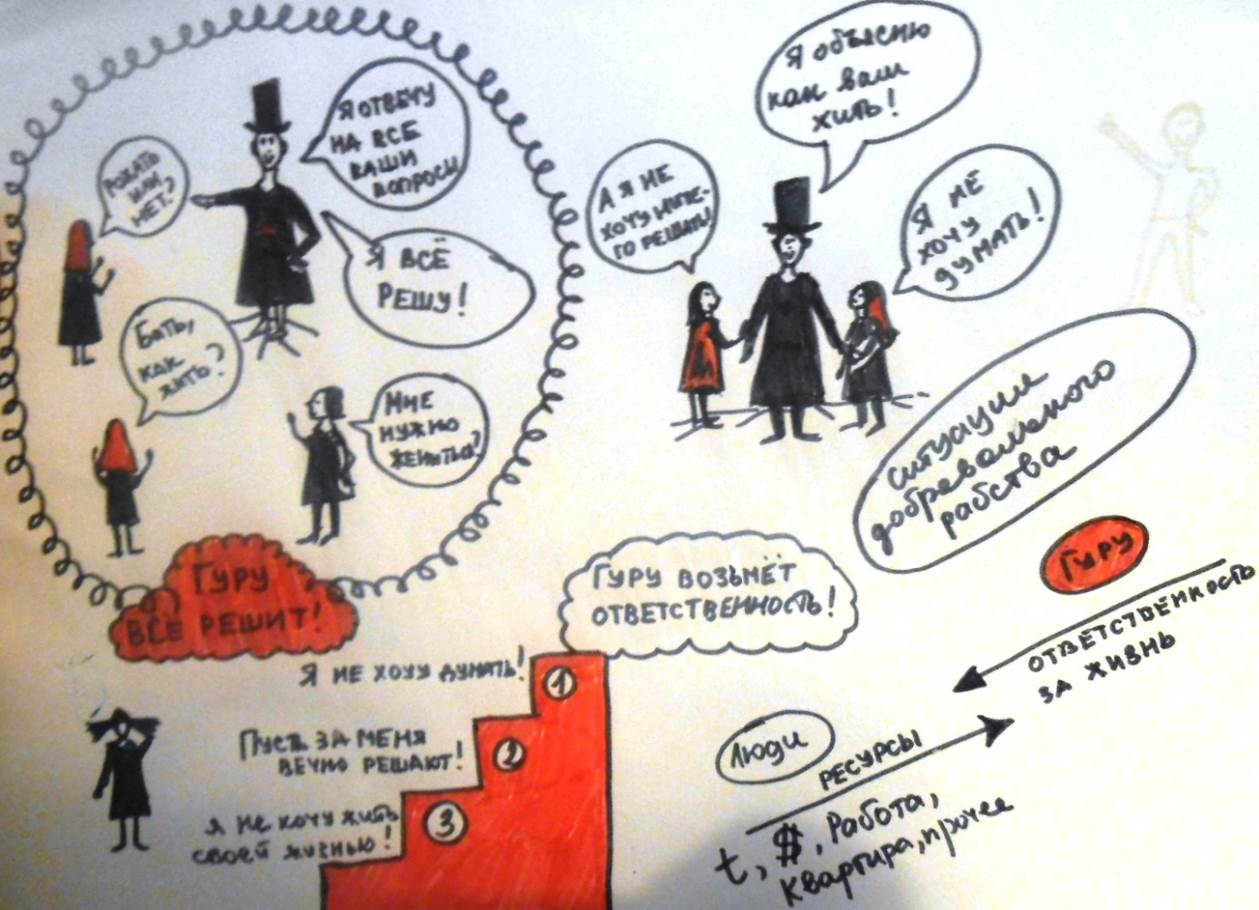 Я ОТВЕЧУ
НА ВСЕ
ВАШИ
ВОПРОСЫ
РОЖАТЬ
ИЛИ
НЕТ?
Я ВСЁ
РЕШУ!
Бать,
КАК
ЖИТЬ?
МНЕ
НУЖНО
ЖЕНИТЬСЯ?
ГУРУ
ВСЕ РЕШИТ!
Я объясню
как вам
жить!
А Я НЕ
ХОЧУ НИЧЕ-
ГО РЕШАТЬ!
Я НЕ
ХОЧУ
ДУМАТЬ!
ситуации
добревального
рабства
ГУРУ ВОЗЬМЁТ
ОТВЕТСТВЕННОСТЬ!
Я НЕ ХОЧУ ДУМАТЬ!
1
ПУСТЬ ЗА МЕНЯ
ВЕЧНО РЕШАЮТ!
2
Я НЕ ХОЧУ ЖИТЬ
СВОЕЙ ЖИЗНЬЮ!
3
ГУРУ
ОТВЕТСТВЕННОСТЬ
ЗА ЖИЗНЬ
ЛЮДИ
РЕСУРСЫ
t, $, Работа,
Квартира, прочее